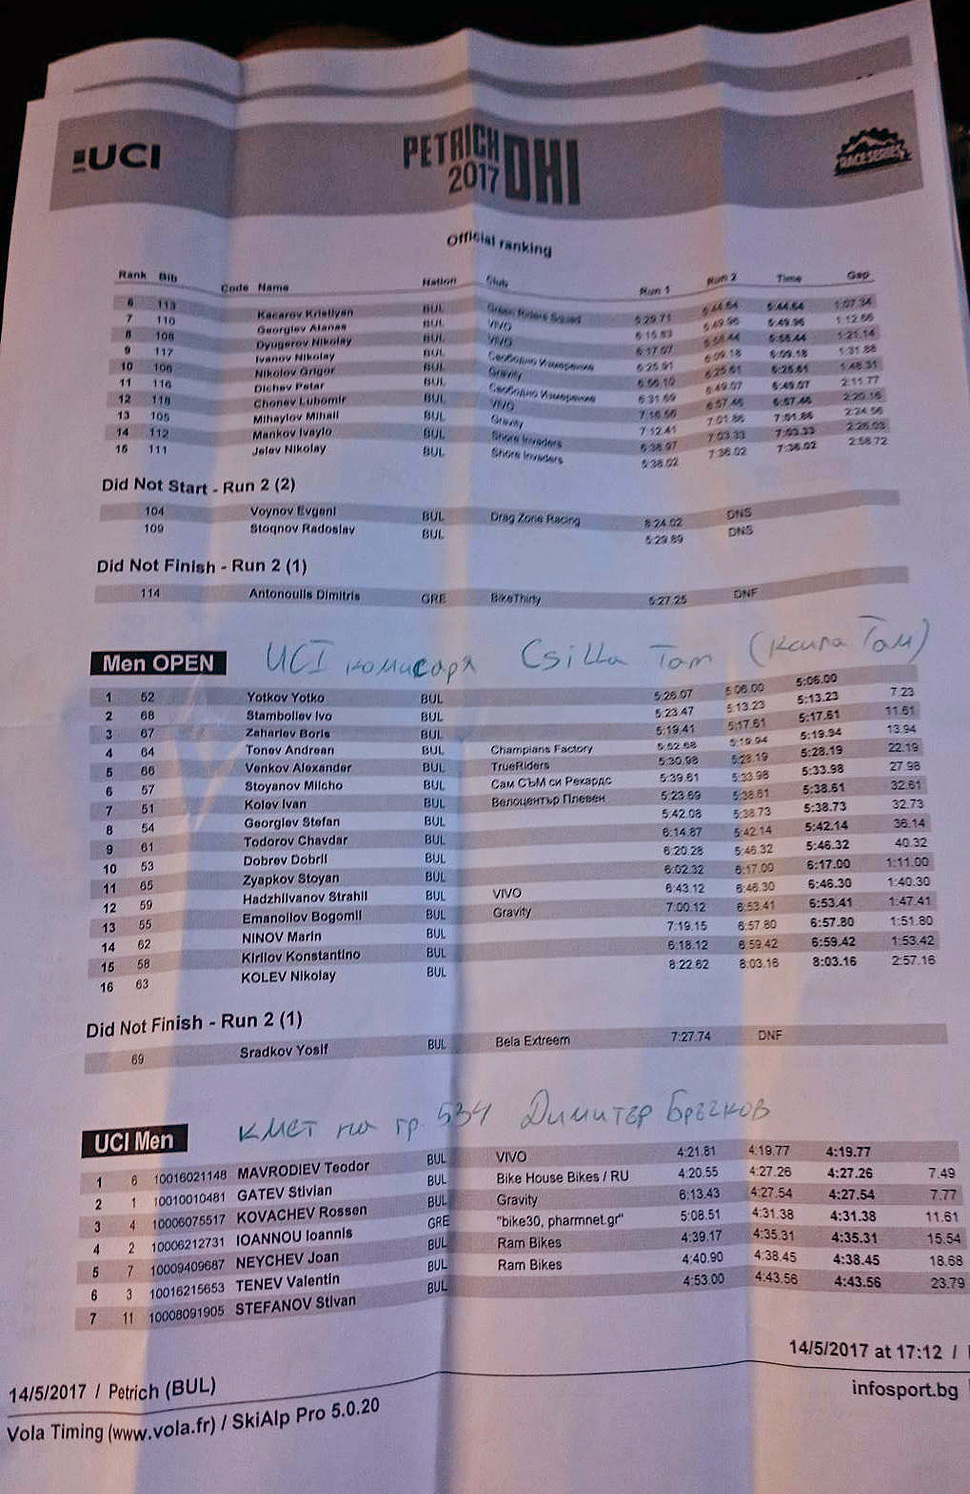 UCI PETRICH 2017 DHI RACE SERIES
Official ranking
Rank Bib Code Name Nation Club Run 1 Run 2 Time Gap
6 113 Kacarov Kristiyan BUL Green Riders Squad 5:29.71 5:44.64 5:44.64 1:07.34
7 110 Georgiev Atanas BUL VIVO 6:15.83 5:49.96 5:49.96 1:12.66
8 108 Dyugerov Nikolay BUL VIVO 6:17.07 5:58.44 5:58.44 1:21.14
9 117 Ivanov Nikolay BUL Свободно Измерение 6:25.91 6:09.18 6:09.18 1:31.88
10 106 Nikolov Grigor BUL Gravity 6:56.10 6:25.61 6:25.61 1:48.31
11 116 Dichev Petar BUL Свободно Измерение 6:31.69 6:49.07 6:49.07 2:11.77
12 118 Chonev Lubomir BUL VIVO 7:16.56 6:57.46 6:57.46 2:20.16
13 105 Mihaylov Mihail BUL Gravity 7:12.41 7:01.86 7:01.86 2:24.56
14 112 Mankov Ivaylo BUL Shore Invaders 6:38.97 7:03.33 7:03.33 2:26.03
15 111 Jelev Nikolay BUL Shore Invaders 5:38.02 7:36.02 7:36.02 2:58.72
Did Not Start - Run 2 (2)
104 Voynov Evgeni BUL Drag Zone Racing 8:24.02 DNS
109 Stoqnov Radoslav BUL 5:29.89 DNS
Did Not Finish - Run 2 (1)
114 Antonoulis Dimitris GRE BikeThirty 5:27.25 DNF
Men OPEN UCI комисаря Csilla Tam (Ксила Там)
1 52 Yotkov Yotko BUL 5:26.07 5:06.00 5:06.00
2 68 Stamboliev Ivo BUL 5:23.47 5:13.23 5:13.23 7.23
3 67 Zahariev Boris BUL 5:19.41 5:17.61 5:17.61 11.61
4 64 Tonev Andrean BUL Champians Factory 5:52.68 5:19.94 5:19.94 13.94
5 66 Venkov Alexander BUL TrueRiders 5:30.98 5:28.19 5:28.19 22.19
6 57 Stoyanov Milcho BUL Сам СЪМ си Рекардс 5:39.61 5:33.98 5:33.98 27.98
7 51 Kolev Ivan BUL Велоцентър Плевен 5:23.69 5:38.61 5:38.61 32.61
8 54 Georgiev Stefan BUL 5:42.08 5:38.73 5:38.73 32.73
9 61 Todorov Chavdar BUL 6:14.87 5:42.14 5:42.14 36.14
10 53 Dobrev Dobril BUL 6:20.28 5:46.32 5:46.32 40.32
11 65 Zyapkov Stoyan BUL 6:02.32 6:17.00 6:17.00 1:11.00
12 59 Hadzhiivanov Strahil BUL VIVO 6:43.12 6:46.30 6:46.30 1:40.30
13 55 Emanoilov Bogomil BUL Gravity 7:00.12 6:53.41 6:53.41 1:47.41
14 62 NINOV Marin BUL 7:19.15 6:57.80 6:57.80 1:51.80
15 58 Kirilov Konstantino BUL 6:18.12 6:59.42 6:59.42 1:53.42
16 63 KOLEV Nikolay BUL 8:22.62 8:03.16 8:03.16 2:57.16
Did Not Finish - Run 2 (1)
69 Sradkov Yosif BUL Bela Extreem 7:27.74 DNF
UCI Men кмет на гр. Димитър Бръчков
1 6 10016021148 MAVRODIEV Teodor BUL VIVO 4:21.81 4:19.77 4:19.77
2 1 10010010481 GATEV Stivian BUL Bike House Bikes / RU 4:20.55 4:27.26 4:27.26 7.49
3 4 10006075517 KOVACHEV Rossen BUL Gravity 6:13.43 4:27.54 4:27.54 7.77
4 2 10006212731 IOANNOU Ioannis GRE "bike30, pharmnet.gr" 5:08.51 4:31.38 4:31.38 11.61
5 7 10009409687 NEYCHEV Joan BUL Ram Bikes 4:39.17 4:35.31 4:35.31 15.54
6 3 10016215653 TENEV Valentin BUL Ram Bikes 4:40.90 4:38.45 4:38.45 18.68
7 11 10008091905 STEFANOV Stivan BUL 4:53.00 4:43.56 4:43.56 23.79
14/5/2017 at 17:12 /
14/5/2017 / Petrich (BUL)
infosport.bg
Vola Timing (www.vola.fr) / SkiAlp Pro 5.0.20